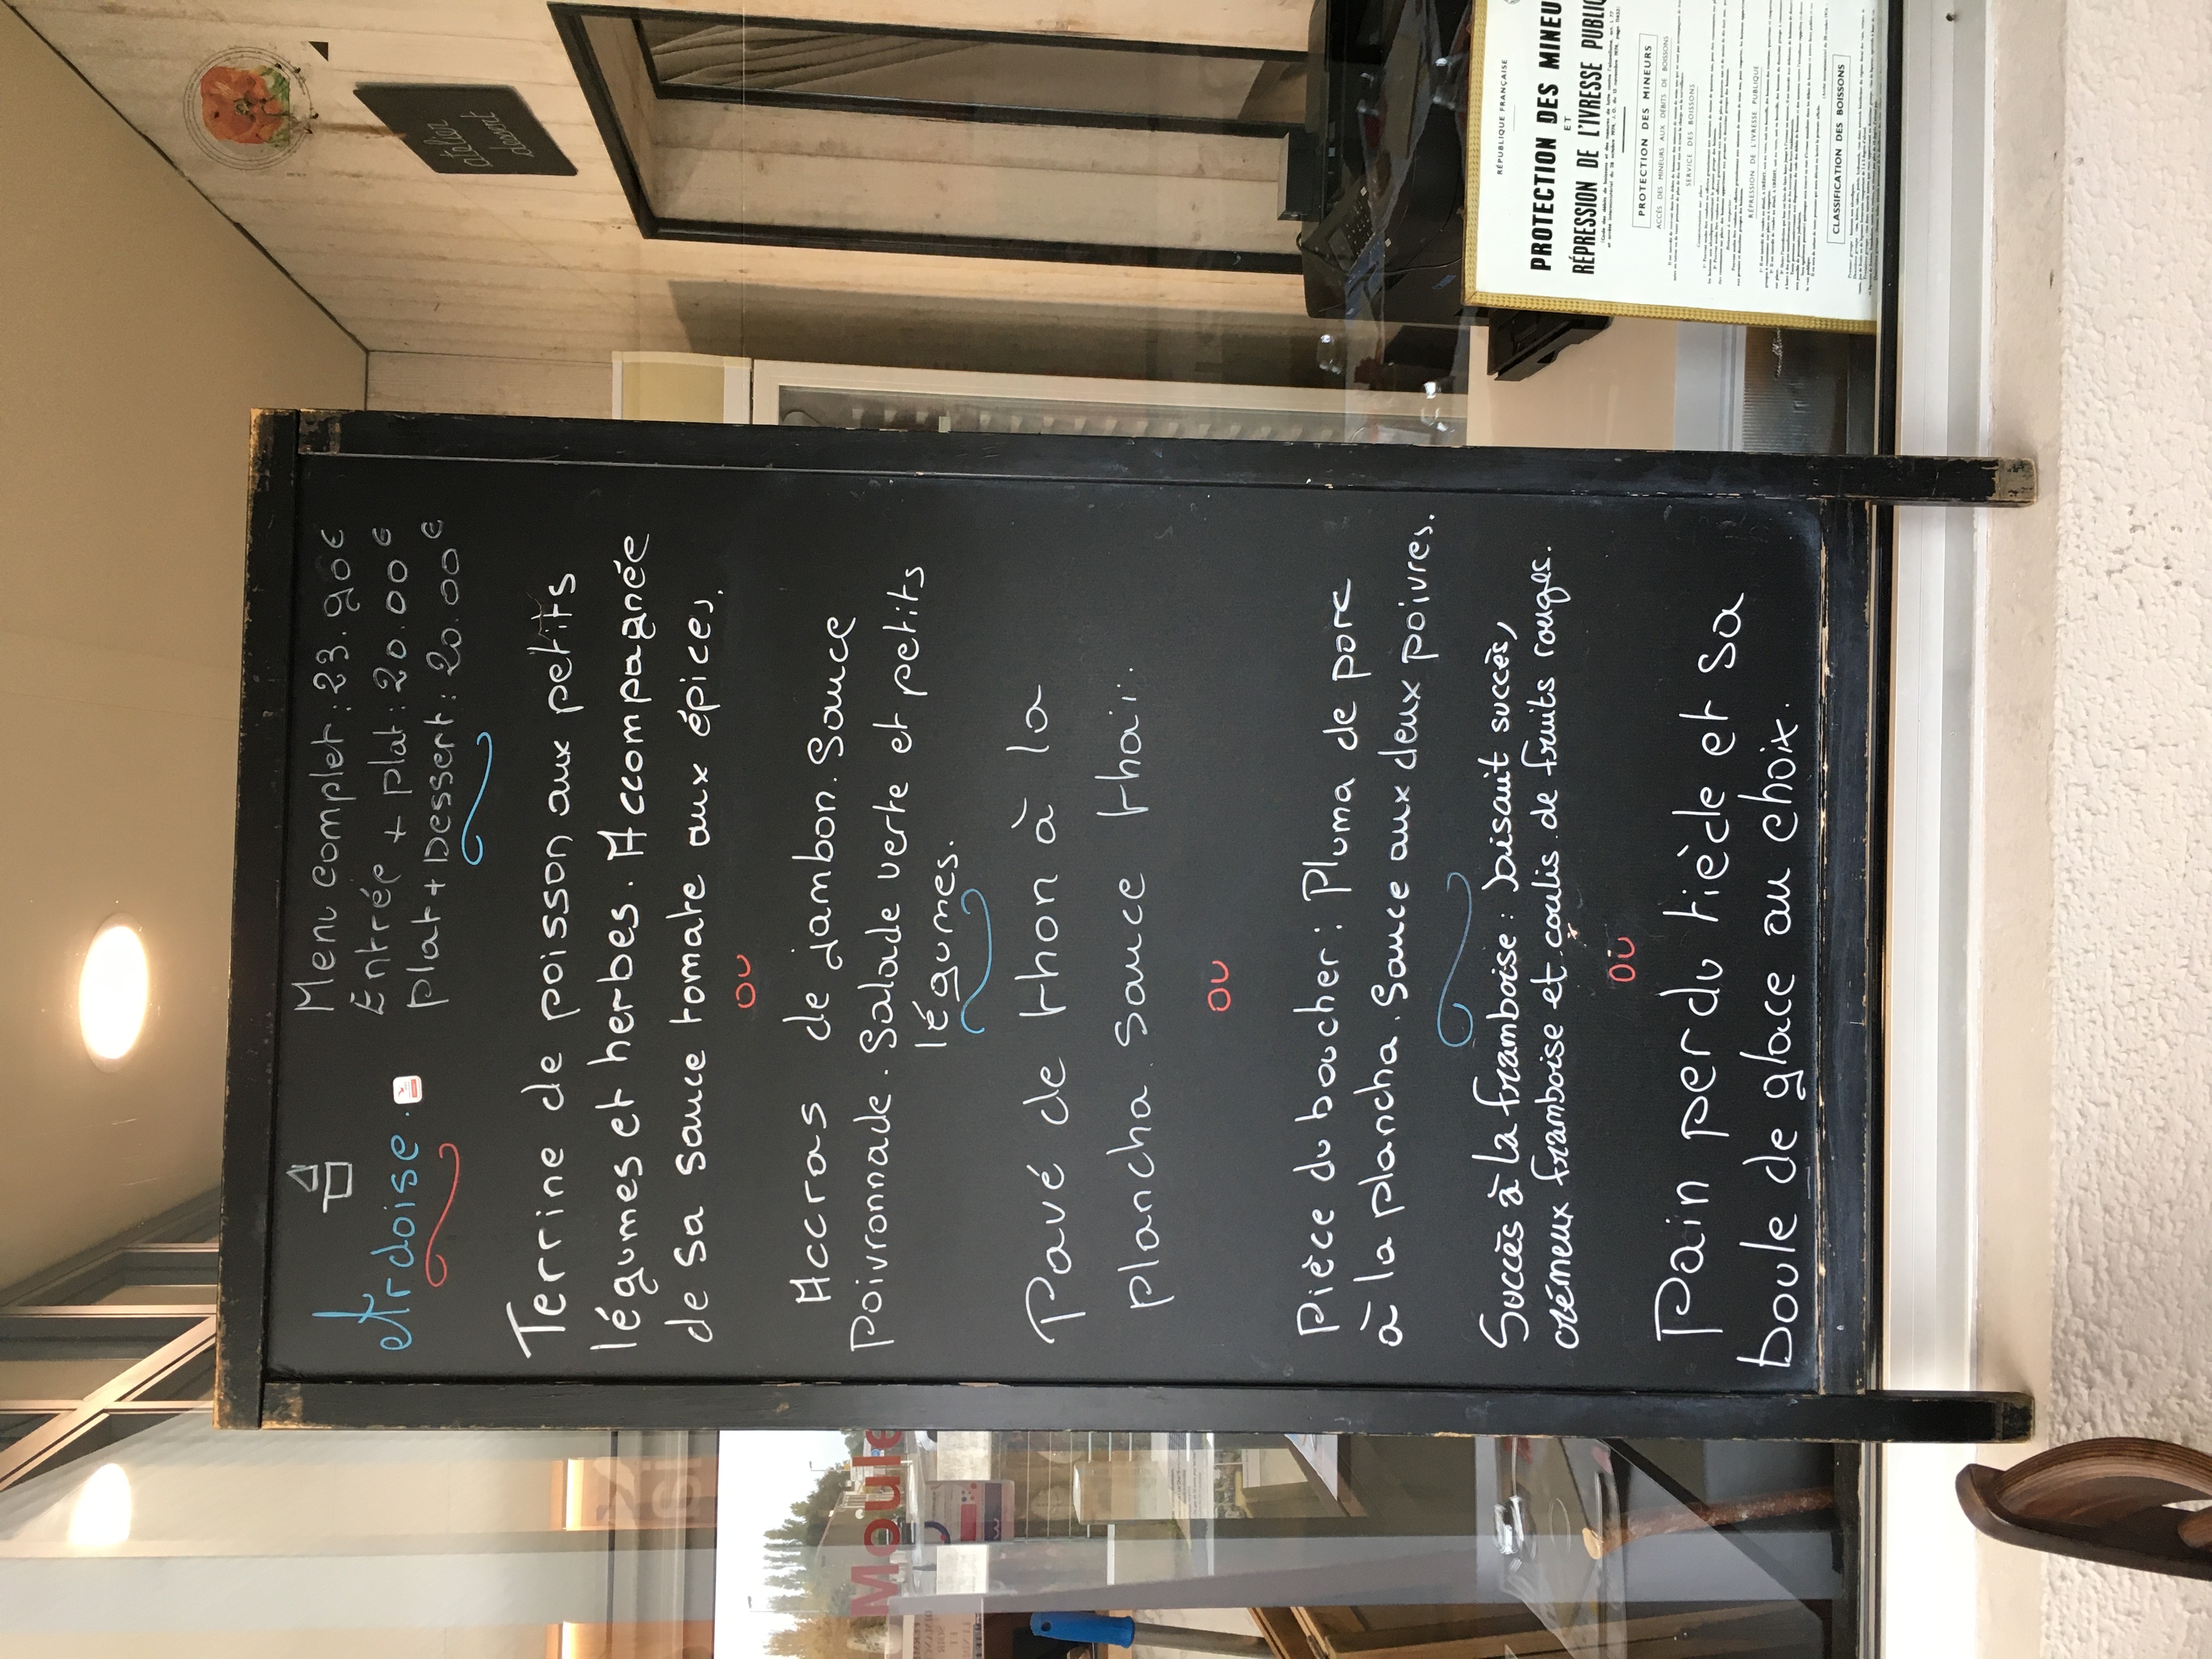 Ardoise.
Menu complet : 23.90€
Entrée + plat : 20.00€
plat + Dessert : 20.00€
Terrine de poisson aux petits
légumes et herbes. Accompagnée
de sa sauce tomate aux épices.
ou
Accras de jambon. Sauce
Poivronnade. Salade verte et petits
légumes.
Pavé de thon à la
plancha. sauce thaï.
ou
Pièce du boucher : Pluma de porc
à la plancha. Sauce aux deux poivres.
Succès à la framboise : biscuit succès,
crémeux framboise et coulis de fruits rouges.
ou
Pain perdu tiède et sa
boule de glace au choix.
atelier
RÉPUBLIQUE FRANÇAISE
PROTECTION DES MINEU
ET
RÉPRESSION DE L'IVRESSE PUBLIQ
PROTECTION DES MINEURS
ACCÈS DES MINEURS AUX DÉBITS DE BOISSONS
SERVICE DES BOISSONS
RÉPRESSION DE L'IVRESSE PUBLIQUE
CLASSIFICATION DES BOISSONS
Moule